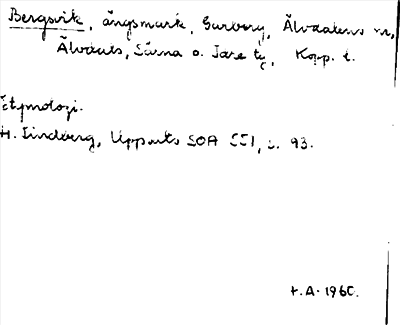 Bergsvik, ängsmark, Garberg, Älvdalens sn,
Älvdals, Särna o. Idre tg, Kopp. l.
Etymologi.
H. Lindberg, Uppsats SOA 551, s. 93.
H.A. 1960.